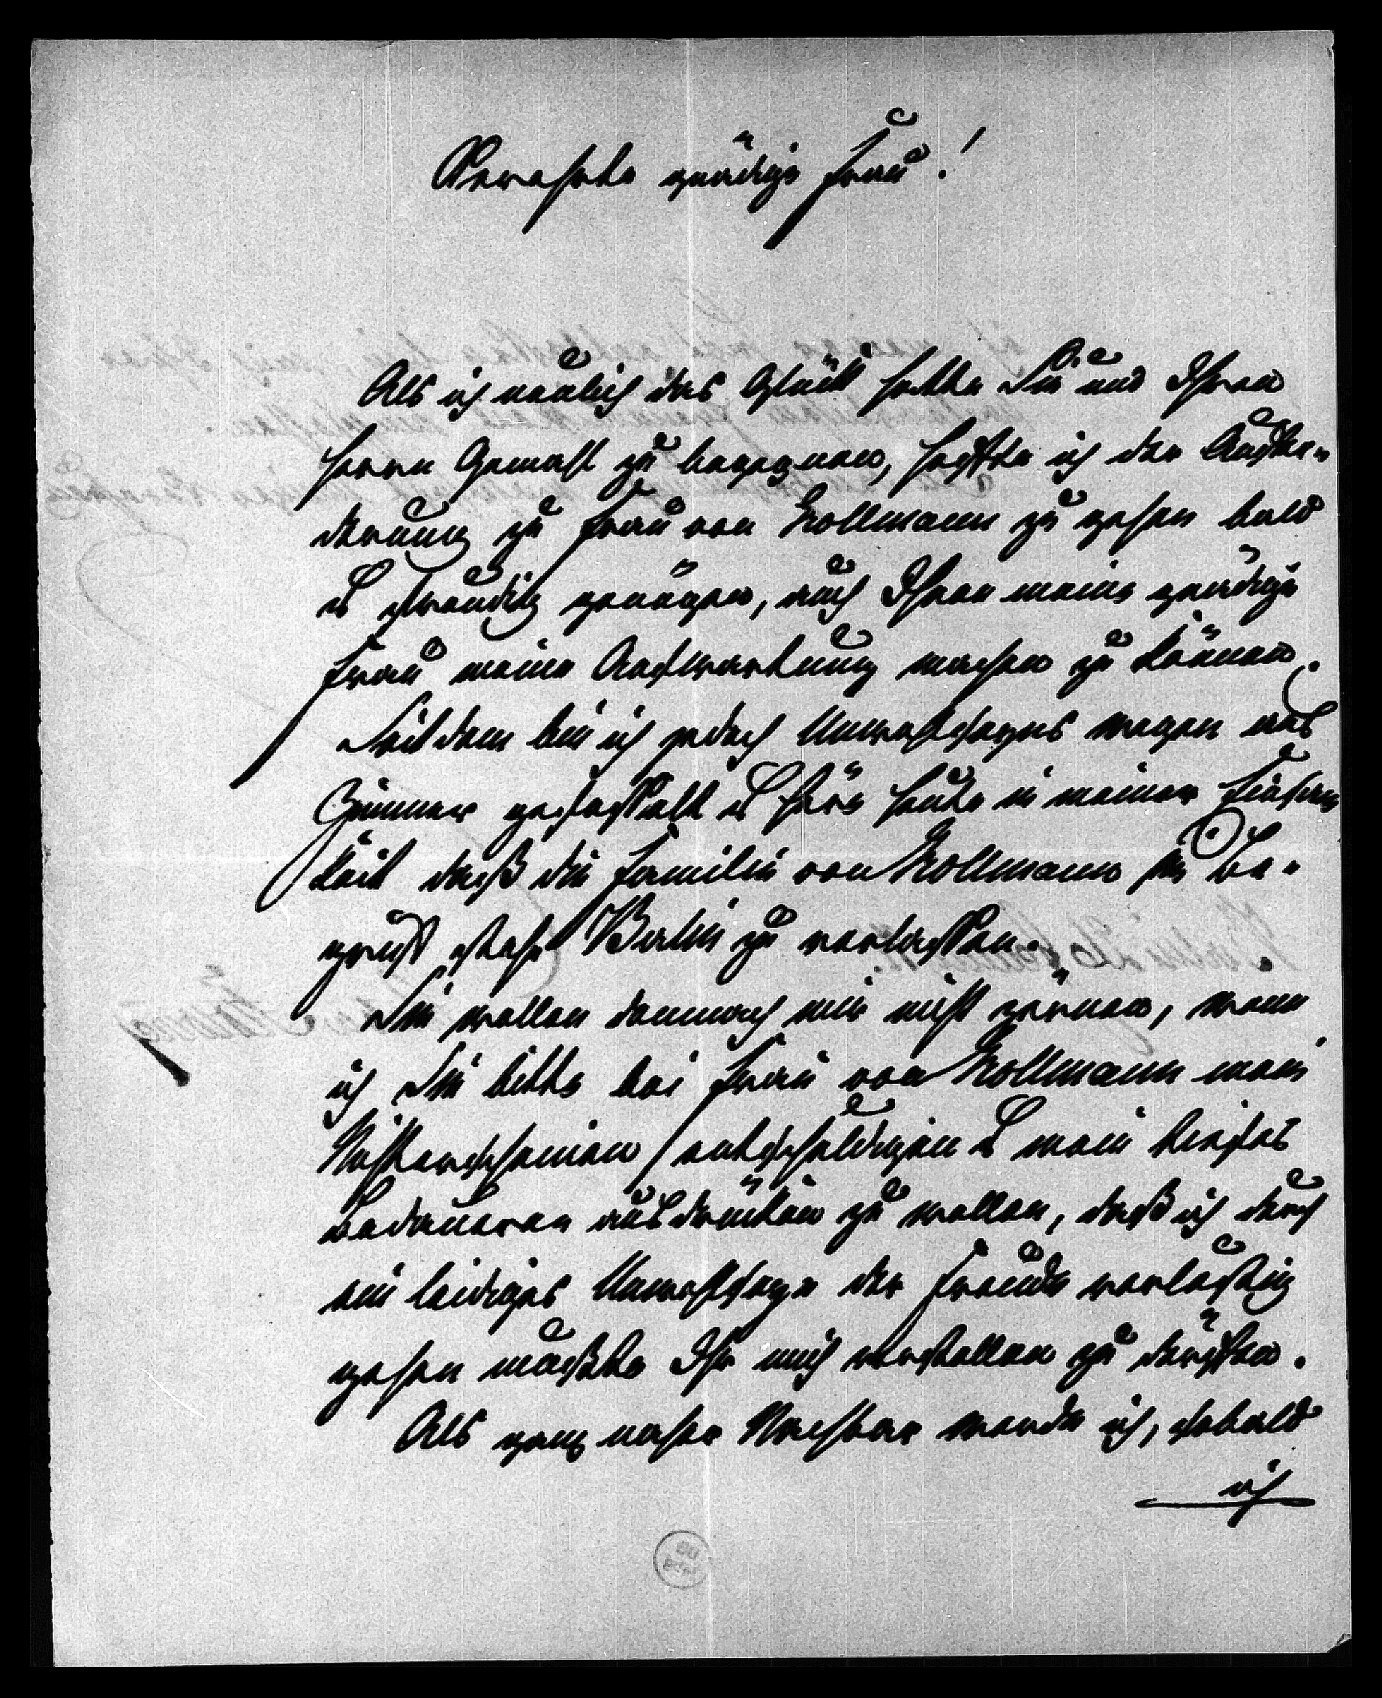 Verehrte gnädige Frau!
Als ich neulich das Glück hatte Sie und Ihren
Herrn Gemahl zu begegnen, hoffte ich der Auffor-
derung zu Frau von Hollmann zu gehen bald
& freudig genügen, auch Ihnen meine gnädige
Frau meine Aufwartung machen zu können.
Seitdem bin ich jedoch Unwohlseyns wegen ans
Zimmer gefesselt & höre heute in meiner Einsam
keit daß die Familie von Hollmann im Be-
griff steht Berlin zu verlassen.
Sie wollen demnach mir nicht zürnen, wenn
ich Sie bitte bei Frau von Hollmann mein
Nichterscheinen entschuldigen & mein tiefes
Bedauern ausdrücken zu wollen, daß ich durch
ein leidiges Unwohlseyn der Freude verlustig
gehen mußte Ihr mich vorstellen zu dürfen.
Als ganz naher Nachbar werde ich, sobald
ich